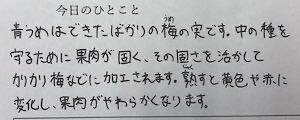 今日のひとこと
青うめはできたばかりの梅の実です。中の種を
守るために果肉が固く、その固さを活かして
カリカリ梅などに加工されます。熟すと黄色や赤に
変化し、果肉がやわらかくなります。